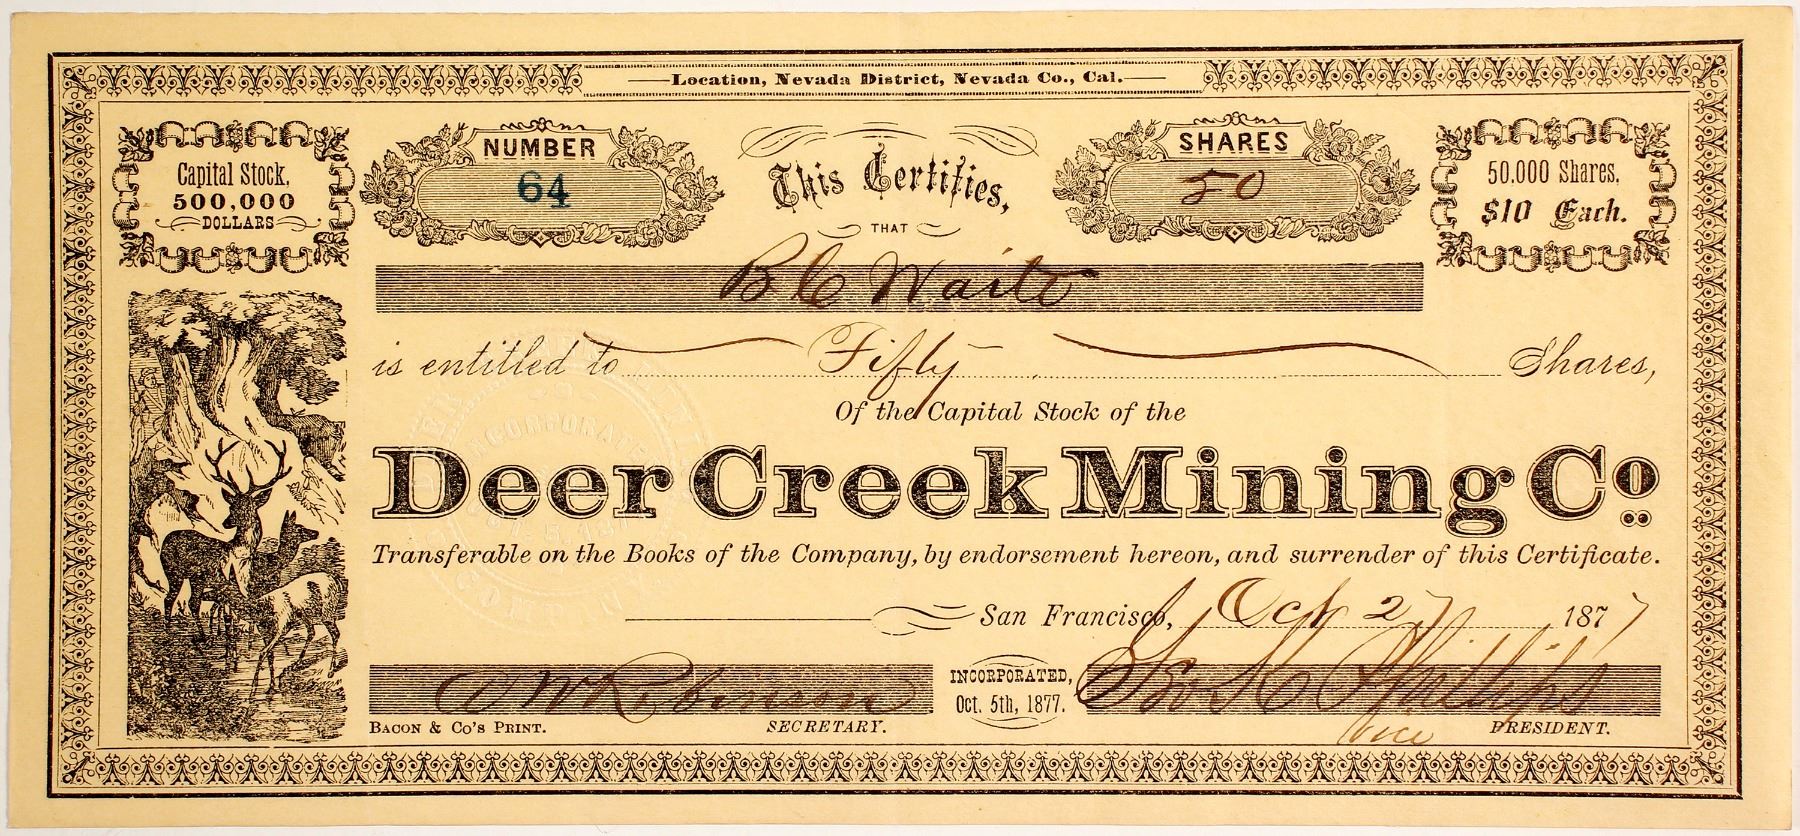 Location, Nevada District, Nevada Co., Cal.
Capital Stock,
500,000
DOLLARS
NUMBER
64
This Certifies,
THAT
SHARES
50
50,000 Shares,
$10 Each.
B. C. Waite
is entitled to Fifty Shares,
Of the Capital Stock of the
Deer Creek Mining Co.
Transferable on the Books of the Company, by endorsement hereon, and surrender of this Certificate.
San Francisco, Oct 27 1877
INCORPORATED,
Oct. 5th, 1877.
Robinson
Phillips
BACON & CO'S PRINT.
SECRETARY.
Vice PRESIDENT.
DEER CREEK MINING COMPANY
INCORPORATED
OCT. 5. 1877